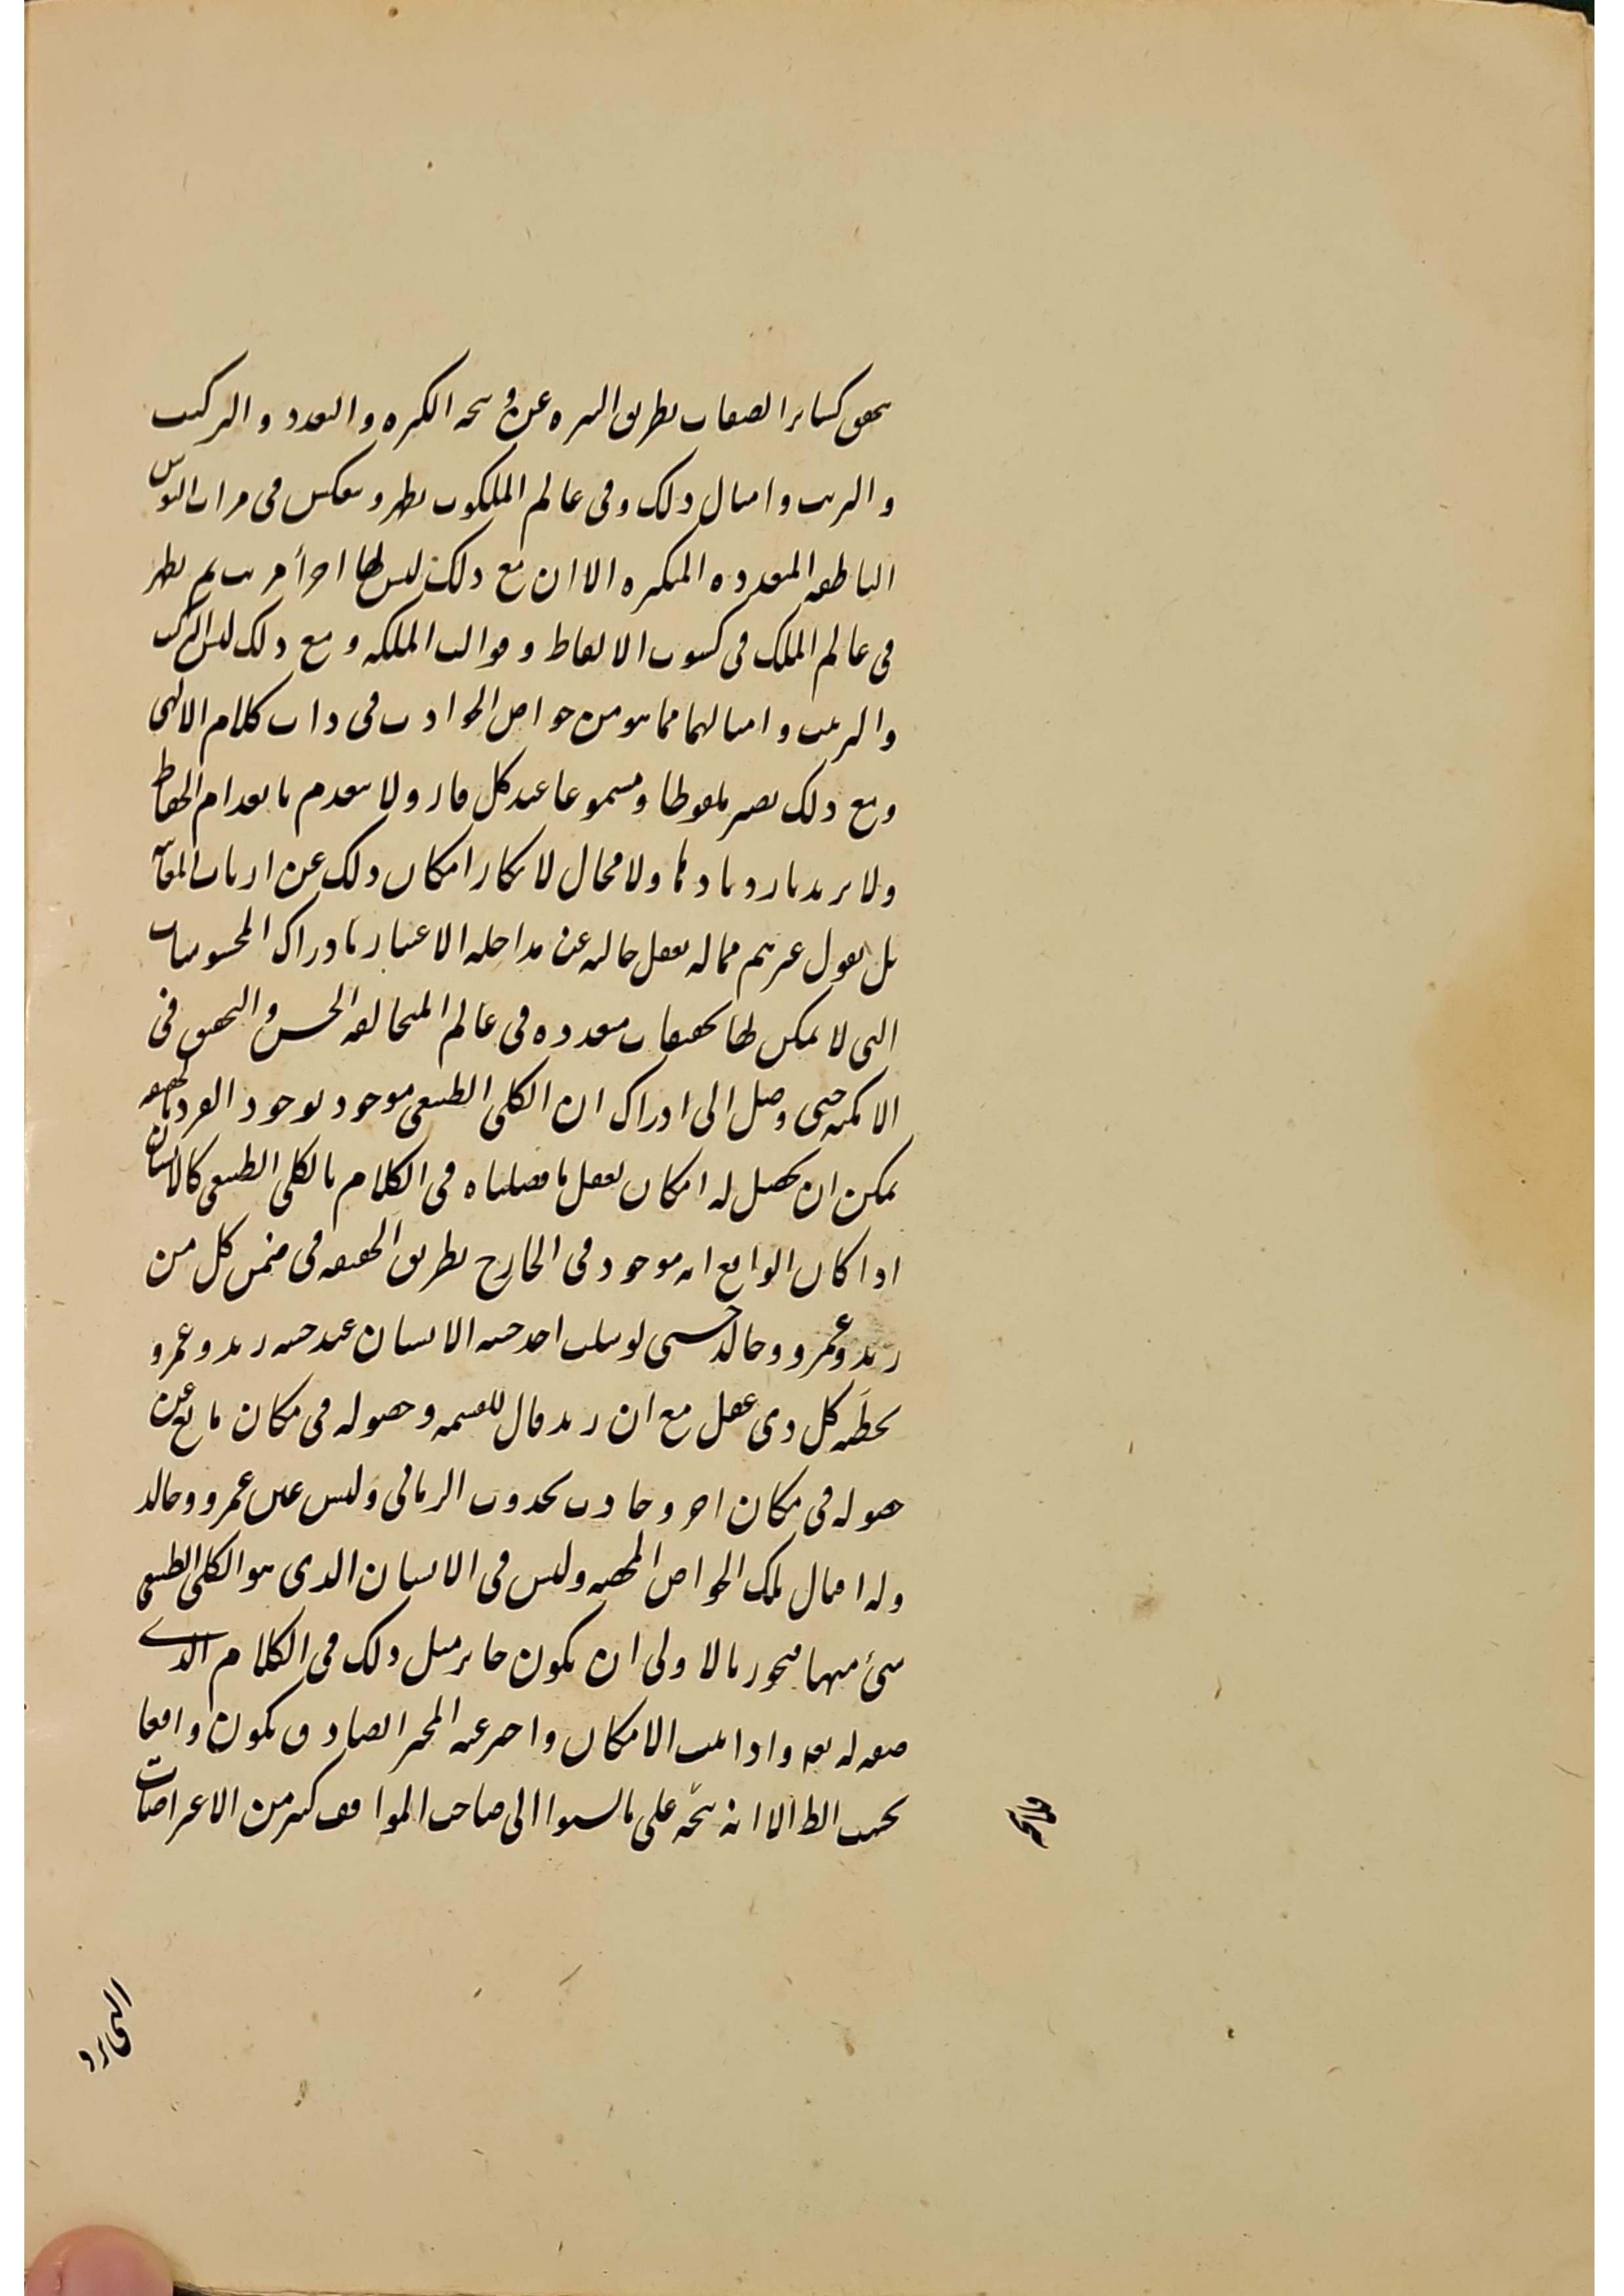 يتحقق كسائر الصفات بطريق التنزه عن وسخه الكثره والتعدد والتركيب
والترتيب وامثال ذلك وفى عالم الملكوت يظهر وينعكس فى مرات النفوس
الناطقه المتعدده المتكثره الا ان مع ذلك ليس لها اجزأ مرتب ثم يظهر
فى عالم الملك فى كسوت الالفاظ وقوالب الملكيه ومع ذلك ليس التركيب
والترتيب وامثالهما مما هو من خواص الحوادث فى ذات كلام الالهى
ومع ذلك يصير ملفوظا ومسموعا عند كل قار ولا ينعدم بانعدام الحفاظ
ولا يزيد بازديادها ولا مجال لانكار امكان ذلك عن ارباب
بل نقول عن هم مما له تعقل خاليه عن مداخله الاغيار بادراك المحسوسات
التى لا يمكن لها تحققات متعدده فى عالم المتخالفه الجنس والتحقق فى
الامكنه حتى وصل الى ادراك ان الكلى الطبيعى موجود بوجود الفرد بالحقيقه
يمكن ان يحصل له امكان تعقل ما فصلناه فى الكلام بالكلى الطبيعى كالانسان
اذا كان الواقع انه موجود فى الخارج بطريق الحقيقه فى ضمن كل من
زيد وعمرو وخالد حتى لو سلب احد حسه الانسان عند حسه زيد وعمرو
يخطئه كل ذى عقل مع ان زيد قابل للقسمه وحصوله فى مكان مانع عن
حصوله فى مكان اخر وحادث بحدوث الزمانى وليس عين عمرو وخالد
وله امثال تلك الخواص المختصه وليس فى الانسان الذى هو الكلى الطبيعى
شئ منها فيجوز بالاولى ان يكون جايز مثل ذلك فى الكلام الذى
صفه له تعه واذا ثبت الامكان واخبر عنه المخبر الصادق يكون واقعا
بحسب الظ الا انه يتجه على ما نسبوا الى صاحب المواقف كثير من الاعراضات
التى يرد